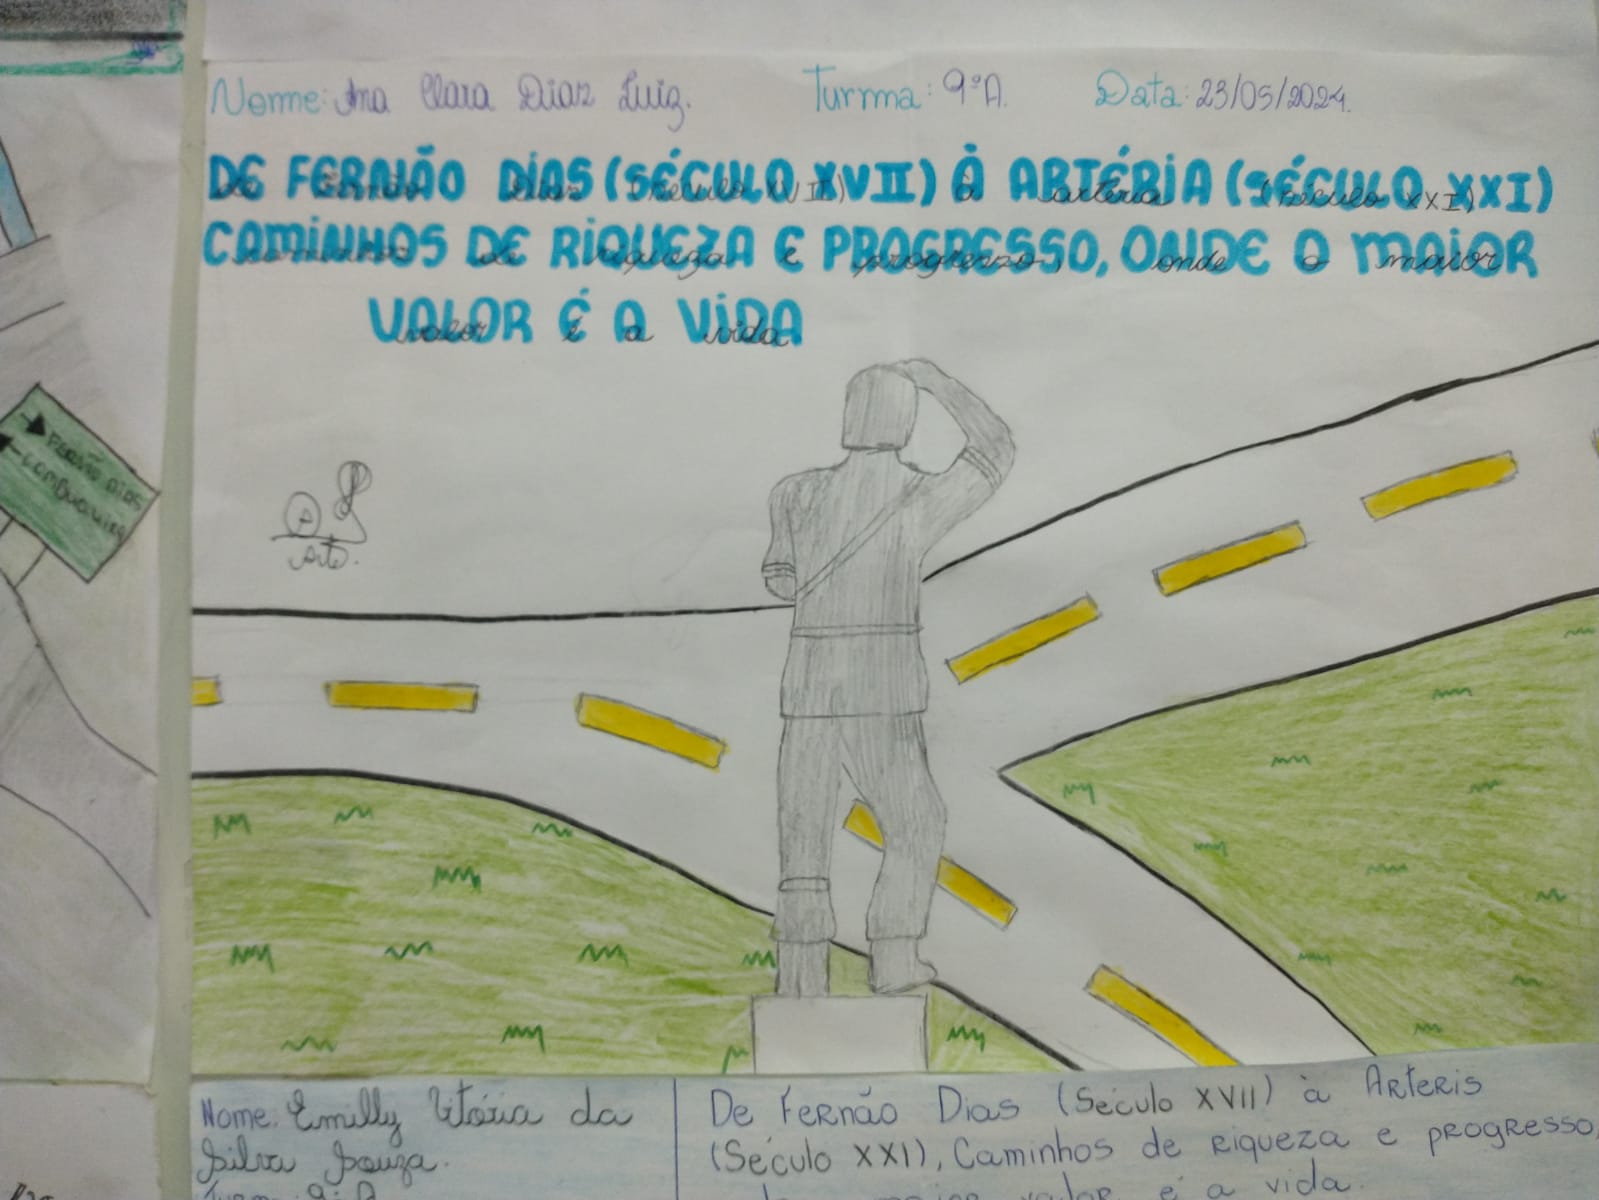 Nome: Ana Clara Diaz Luiz. Turma: 9ºA. Data: 23/05/2024.
DE FERNÃO DIAS (SÉCULO XVII) À ARTÉRIA (SÉCULO XXI)
CAMINHOS DE RIQUEZA E PROGRESSO, ONDE O MAIOR
VALOR É A VIDA
Arte.
FERNÃO DIAS
CAMBUQUIRA
Nome: Emilly Vitória da
Silva Souza.
9º A
De Fernão Dias (Século XVII) à Arteris
(Século XXI), Caminhos de riqueza e progresso,
maior valor é a vida.